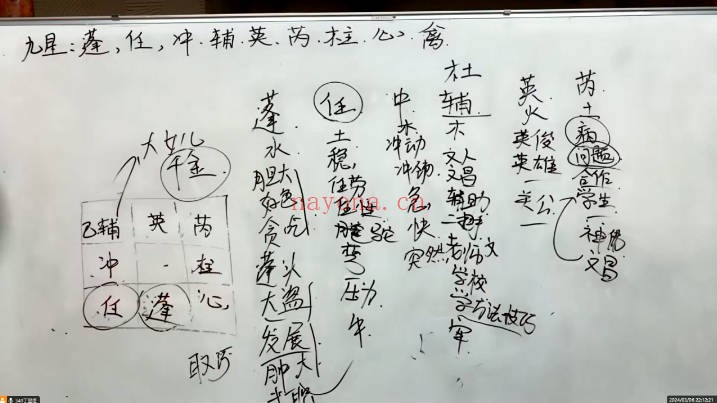 九星：蓬，任，冲．辅．英．芮．柱．心．禽
大女儿
千金
乙辅 英 芮
冲 · 柱
任 蓬 心
取巧
蓬
水
胆大
好色
贪吃
蓬头
大盗
发展
肿大
任
土
稳，
任劳
任性
压力
牛
冲
木
冲动
冲锋
快
突然
杜
辅
木
文人
文昌
辅助
二把手
老师
学校
学方法技巧
军
英
火
英俊
英雄
芮
土
病
问题
合作
学生
文昌
nayona.cn
2024/03/06 22:12:21